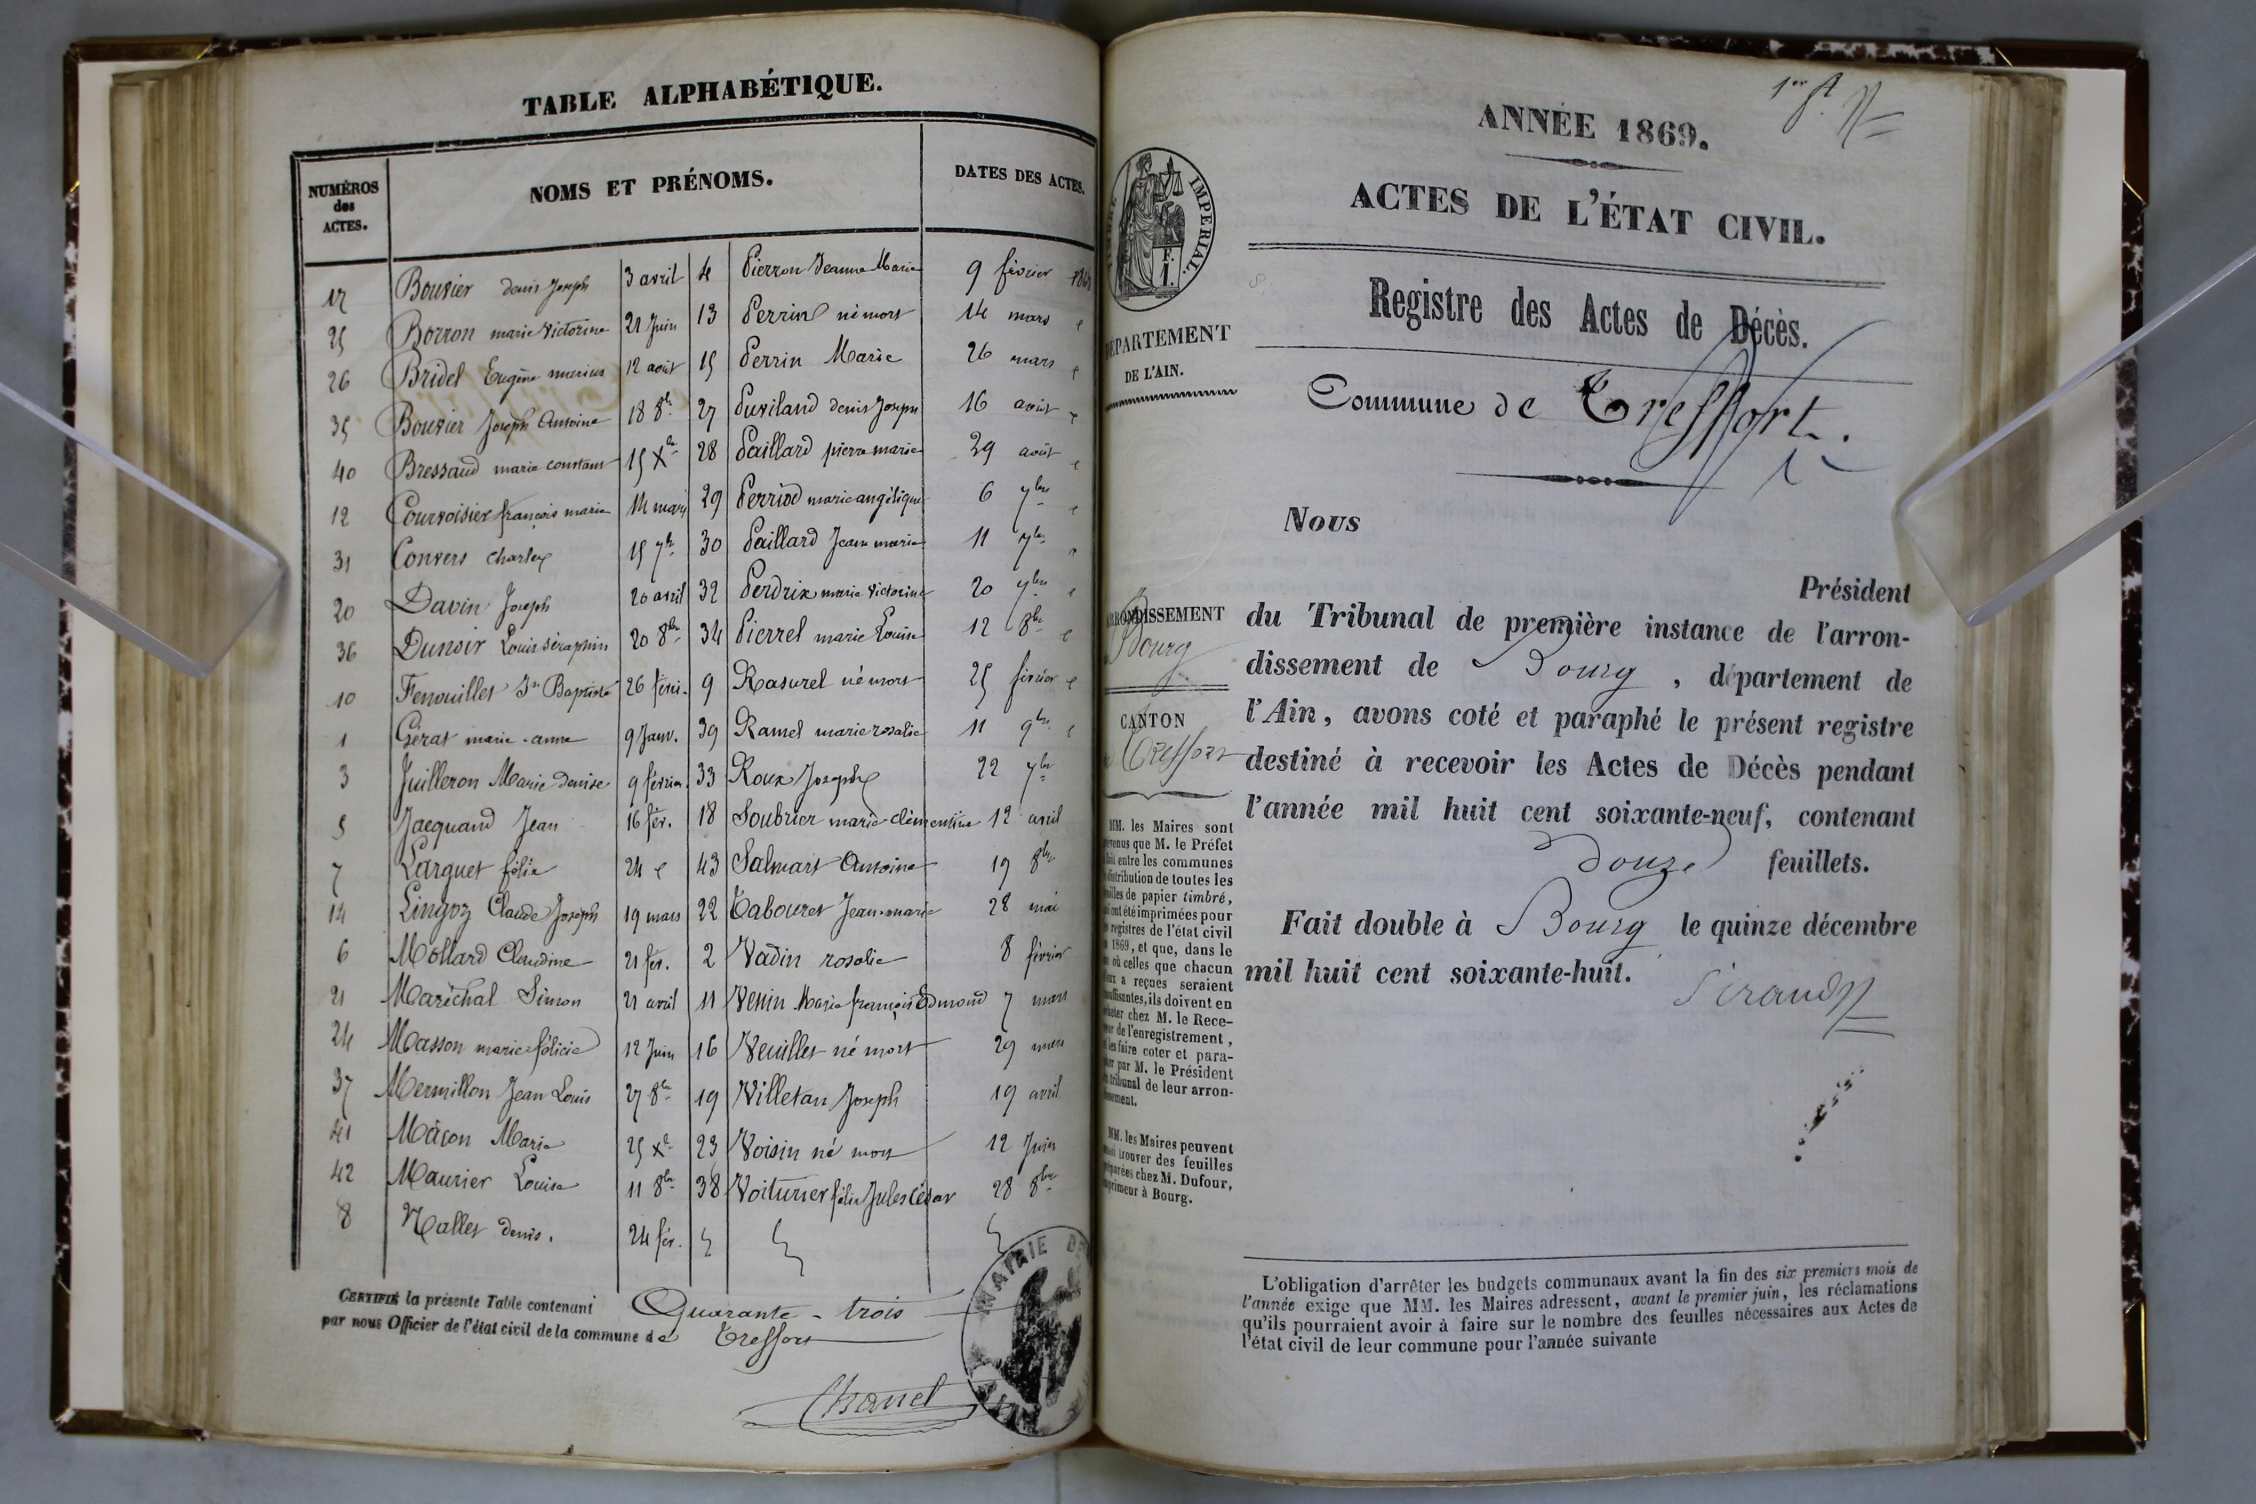 TABLE ALPHABÉTIQUE.
NUMÉROS
des
ACTES.
NOMS ET PRÉNOMS.
DATES DES ACTES.
17 Bouvier denis Joseph 3 avril 4 Pierron Jeanne Marie 9 février 1868
25 Borron marie Victorine 21 Juin 13 Perrin né mort 14 mars
26 Bridel Eugène marius 12 août 15 Perrin Marie 26 mars
35 Bouvier Joseph Antoine 18 8bre 27 Puviland denis Joseph 16 août
40 Bressand marie constant 15 Xbre 28 Paillard pierre marie 29 août
12 Courvoisier françois marie 14 mars 29 Perriod marie angélique 6 7bre
31 Convers Charles 15 7bre 30 Paillard Jean marie 11 7bre
20 Davin Joseph 20 avril 32 Perdrix marie Victorine 20 7bre
36 Dunoir Louis séraphin 20 8bre 34 Pierrel marie Louise 12 8bre
10 Fenouillet Jn Baptiste 26 févri. 9 Rasurel né mort 25 février
1 Gérat marie-anne 9 Janv. 39 Ramel marie rosalie 11 9bre
3 Juilleron Marie denise 9 février 33 Roux Joseph 22 7bre
5 Jacquand Jean 16 fév. 18 Soubrier marie clémentine 12 avril
7 Larguet félix 24 43 Salmart Antoine 19 8bre
14 Lingoz Claude Joseph 19 mars 22 Tabouret Jean-marie 28 mai
6 Mollard Claudine 21 fév. 2 Vadin rosalie 8 février
21 Maréchal Simon 21 avril 11 Venin Marie françois Edmond 7 mars
24 Masson marie félicie 12 Juin 16 Veuillet né mort 29 mars
37 Mermillon Jean Louis 27 8bre 19 Villetan Joseph 19 avril
41 Mâcon Marie 25 Xbre 23 Voisin né mort 12 Juin
42 Maurier Louise 11 8bre 38 Voiturier félix Jules César 28 8bre
8 Nallet denis. 24 fév.
CERTIFIÉ la présente Table contenant Quarante-trois
par nous Officier de l'état civil de la commune de Treffort
Chanel
MAIRIE DE
1er
ANNÉE 1869.
ACTES DE L'ÉTAT CIVIL.
Registre des Actes de Décès.
Commune de Treffort.
IMPERIAL.
DÉPARTEMENT
DE L'AIN.
ARRONDISSEMENT
Bourg
CANTON
Treffort
MM. les Maires sont
prévenus que M. le Préfet
fait entre les communes
distribution de toutes les
feuilles de papier timbré,
qui ont été imprimées pour
les registres de l'état civil
1869, et que, dans le
cas où celles que chacun
d'eux a reçues seraient
insuffisantes, ils doivent en
acheter chez M. le Rece-
veur de l'enregistrement,
et les faire coter et para-
pher par M. le Président
du tribunal de leur arron-
dissement.
MM. les Maires peuvent
aussi trouver des feuilles
préparées chez M. Dufour,
imprimeur à Bourg.
Nous
Président
du Tribunal de première instance de l'arron-
dissement de Bourg, département de
l'Ain, avons coté et paraphé le présent registre
destiné à recevoir les Actes de Décès pendant
l'année mil huit cent soixante-neuf, contenant
Douze feuillets.
Fait double à Bourg le quinze décembre
mil huit cent soixante-huit.
Sirand
L'obligation d'arrêter les budgets communaux avant la fin des six premiers mois de
l'année exige que MM. les Maires adressent, avant le premier juin, les réclamations
qu'ils pourraient avoir à faire sur le nombre des feuilles nécessaires aux Actes de
l'état civil de leur commune pour l'année suivante